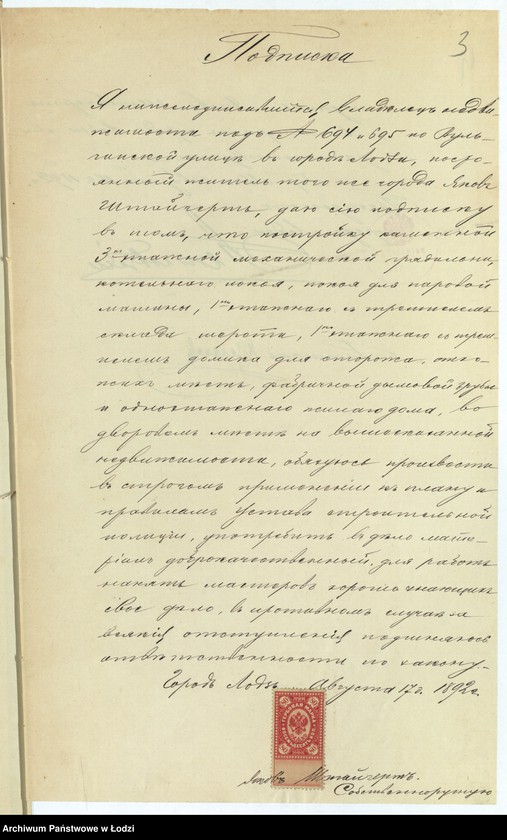 3
Подписка
Я нижеподписавшійся, владѣлецъ недви-
жимости подъ № 694 и 695 по Вуль-
чанской улицѣ въ городѣ Лодзи, посто-
янный житель того же города Яковъ
Штайгертъ, даю сію подписку
въ томъ, что постройку каменной
3хъ этажной механической прядильни,
котельнаго покоя, покоя для паровой
машины, 1но этажнаго съ
склада шерсти, 1но этажнаго съ
домика для сторожа, отхо-
жихъ мѣстъ, фабричной дымовой трубы
и одноэтажнаго жилаго дома, во
дворовомъ мѣстѣ на вышесказанной
недвижимости, обязуюсь произвести
въ строгомъ примѣненіи къ плану и
правиламъ устава строительной
полиціи, употребить въ дѣло мате-
ріалъ доброкачественный, для работъ
нанять мастеровъ хорошо знающихъ
свое дѣло, въ противномъ случаѣ за
всякія отступленія подвергаюсь
отвѣтственности по закону.-
Городъ Лодзь Августа 17 г. 1892 г.
80 80
80 80
Яковъ Штайгертъ.
Собственноручно
Archiwum Państwowe w Łodzi